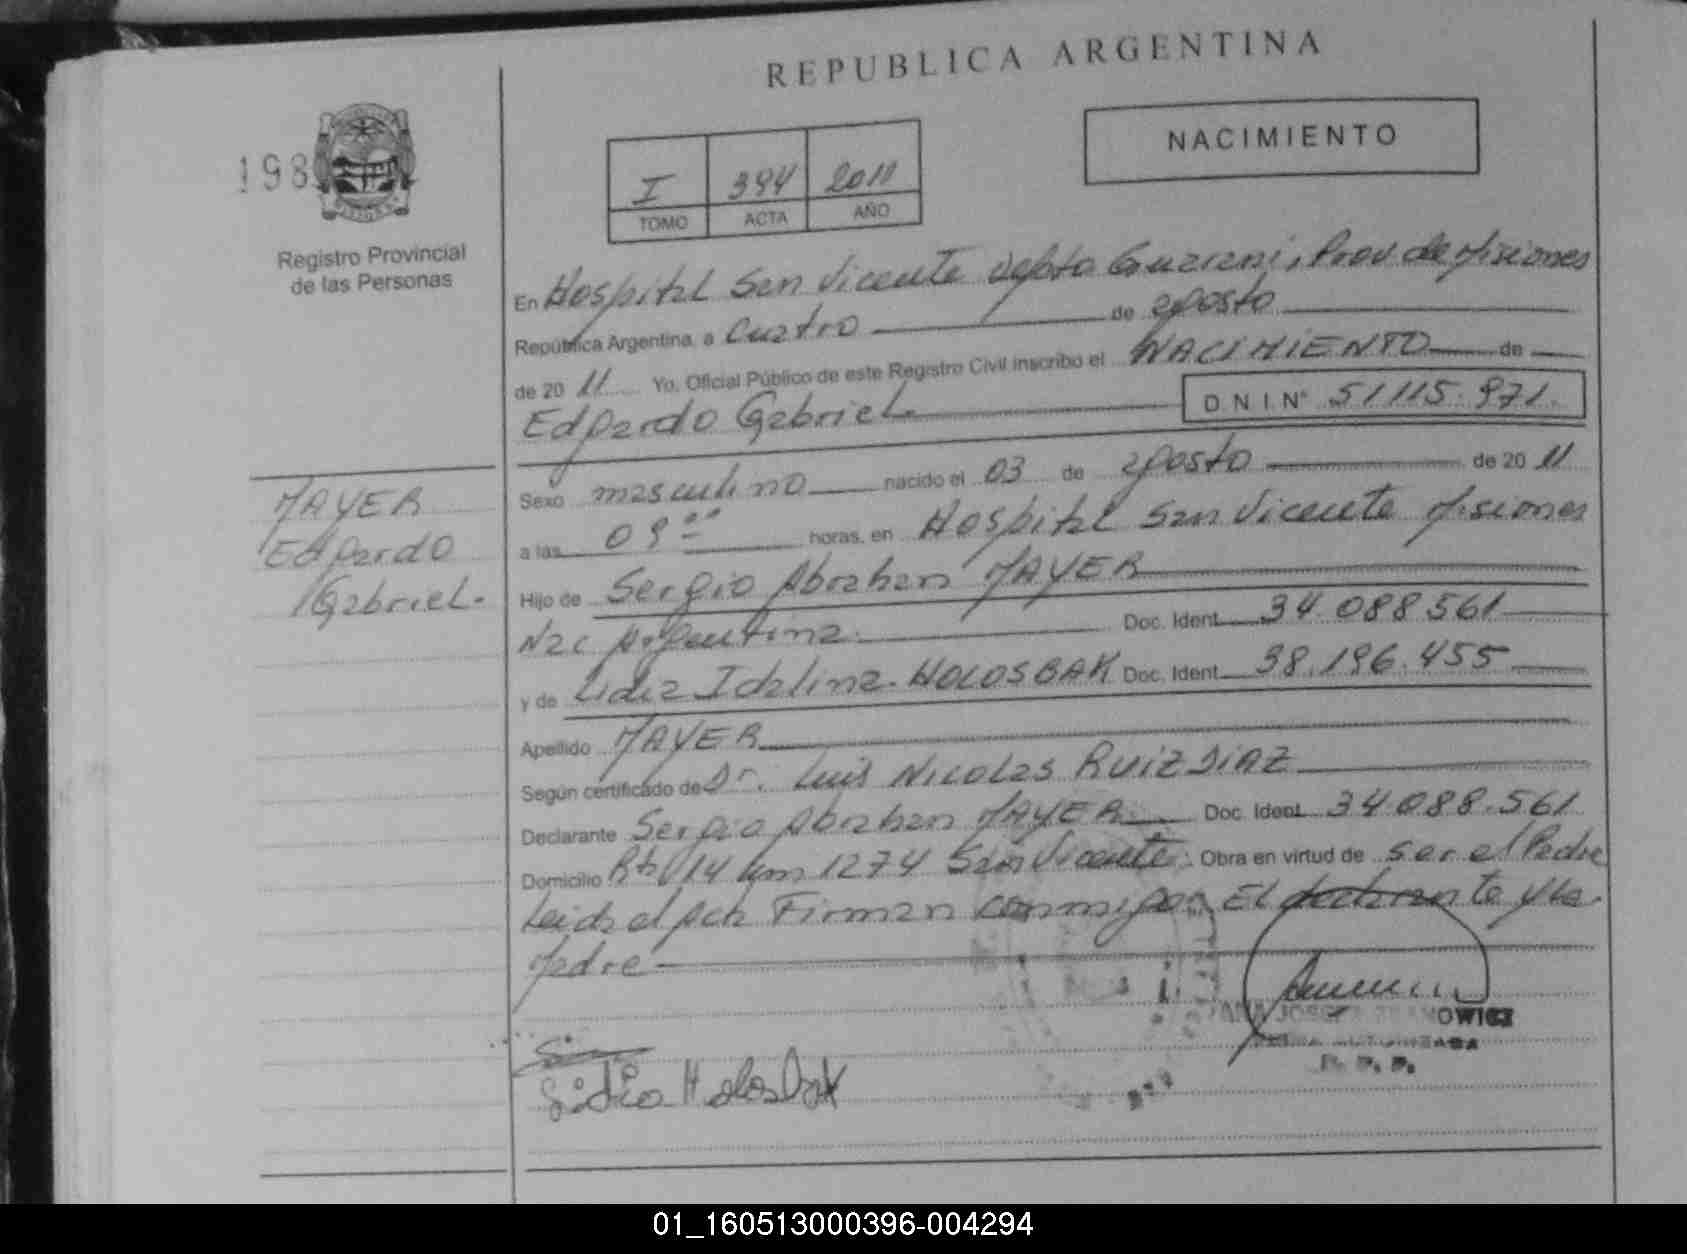 REPUBLICA ARGENTINA
NACIMIENTO
198
I 394 2011
TOMO ACTA AÑO
Registro Provincial
de las Personas
En Hospital San Vicente Depto Guarani, Prov de Misiones
República Argentina, a Cuatro de agosto
de 20 11 Yo, Oficial Público de este Registro Civil inscribo el NACIMIENTO de
Edgardo Gabriel D.N.I.N° 51.115.971.
Sexo masculino nacido el 03 de agosto de 20 11
a las 09 00 horas, en Hospital San Vicente Misiones
Hijo de Sergio Abrahan MAYER
Nac Argentina Doc. Ident. 34.088561
y de Lidia Idalina HOLOSBAK Doc. Ident. 38.196.455
Apellido MAYER
Según certificado de Dr. Luis Nicolas RUIZ DIAZ
Declarante Sergio Abrahan MAYER Doc. Ident. 34.088.561
Domicilio Rta 14 km 1274 San Vicente Obra en virtud de ser el Padre
Leida el acta Firman conmigo El declarante y la
Madre
MAYER
Edgardo
Gabriel.
Lidia Holosbak
01_160513000396-004294